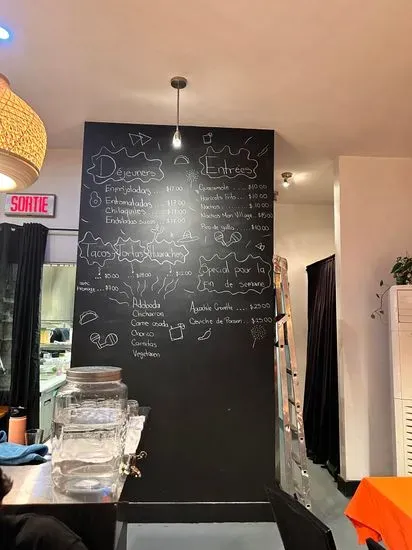 SORTIE
Déjeuners
Enfrijoladas ..... $17.00
Entomatadas ..... $17.00
Chilaquiles ..... $17.00
Enchiladas suizas ... $17.00
Entrées
Guacamole .... $10.00
Haricots frito ..... $10.00
Nachos ..... $10.00
Nachos Mon Village .. $15.00
Pico de gallo ..... $10.00
Tacos Tortas Huaraches
avec fromage
Adobada
Chicharron
Carne asada
Chorizo
Carnitas
Végétarien
Special pour la
Fin de semaine
Aguachile Crevette ... $25.00
Ceviche de Poisson ... $25.00